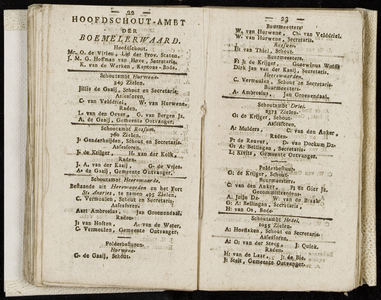 22
HOOFDSCHOUT-AMBT
DER
BOEMELERWAARD.
Hoofdschout.
Mr. O. de Vries, Lid der Prov. Staten.
J. M. G. Hofman van Hove, Secretaris.
K. van de Werken, Kantoor-Bode.
Schoutambt Hurwenen.
309 Zielen.
Schout en Secretaris.
Assessoren.
C. van Velddriel, W. van Hurwene.
Raden.
L. van den Oever, G. van Bergen Jz.
A. de Gaaij, Gemeente Ontvanger.
Schoutambt Rossum.
760 Zielen.
J: Genderheijden, Schout en Secretaris.
Assessoren.
D: de Krijger, H: van der Kolk.
Raden.
J. A. van der Kaaij, G: de Vries.
A: de Gaaij, Gemeente Ontvanger.
Schoutambt Heerewaarden.
Bestaande uit Heerewaarden en het Fort
St. Andries, te zamen 493 Zielen.
C. Vermeulen, Schout en Secretaris.
Assessoren.
Aart Ambrosius, Jan Groosendaal.
Raden.
J: van Hosten, A: van de Water.
C: Vermeulen, Gemeente Ontvanger.
Polderbesturen.
Hurwene.
C: de Gaaij, Schout.
23
Buurmeesters.
W. van Hurwene, Ch: van Velddriel,
W: van Hurwene, Secretaris.
Rossum.
H: van Thiel, Schout.
Buurmeesters.
F: de Krijger,
Dirk van der Kaaij, Secretaris.
Heerewaarden.
C. Vermeulen, Schout en Secretaris.
Buurmeesters.
A: Ambrosius, Jan Groosendaal.
Schoutambt Driel.
2373 Zielen.
Schout en Secretaris.
Assessoren.
A: Mulders, C: van den Anker,
Raden.
P: de Reuver, D: van Dockum Dz.
O: A: Bellingen, Secretaris.
L: Kreits, Gemeente Ontvanger.
Polderbestuur.
G: de Krijger, Schout.
Buurmeesters.
C: van den Anker, P: de Gier Jz.
Gecommitteerden.
W: van de Braak.
O: A: Bellingen, Secretaris.
H: van Os, Bode.
Schoutambt Hedel.
1033 Zielen.
A: Hoefsloen, Schout en Secretaris.
Assessoren.
A: G: van der Steeg, J. Quick.
Raden.
H: van de Laar, J: de Bie.
B: Stals, Gemeente Ontvanger.